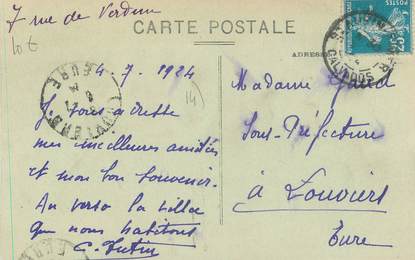 7 rue de Verdun
CARTE POSTALE
10 €
ADRESSE
4-7-1924
14
EURE
LOUVIERS
CALVADOS
25
Je vous adresse
mes meilleures amitiés
et mon bon souvenir.
Au verso la villa
que nous habitons
Madame
Sous-Préfecture
à Louviers
Eure